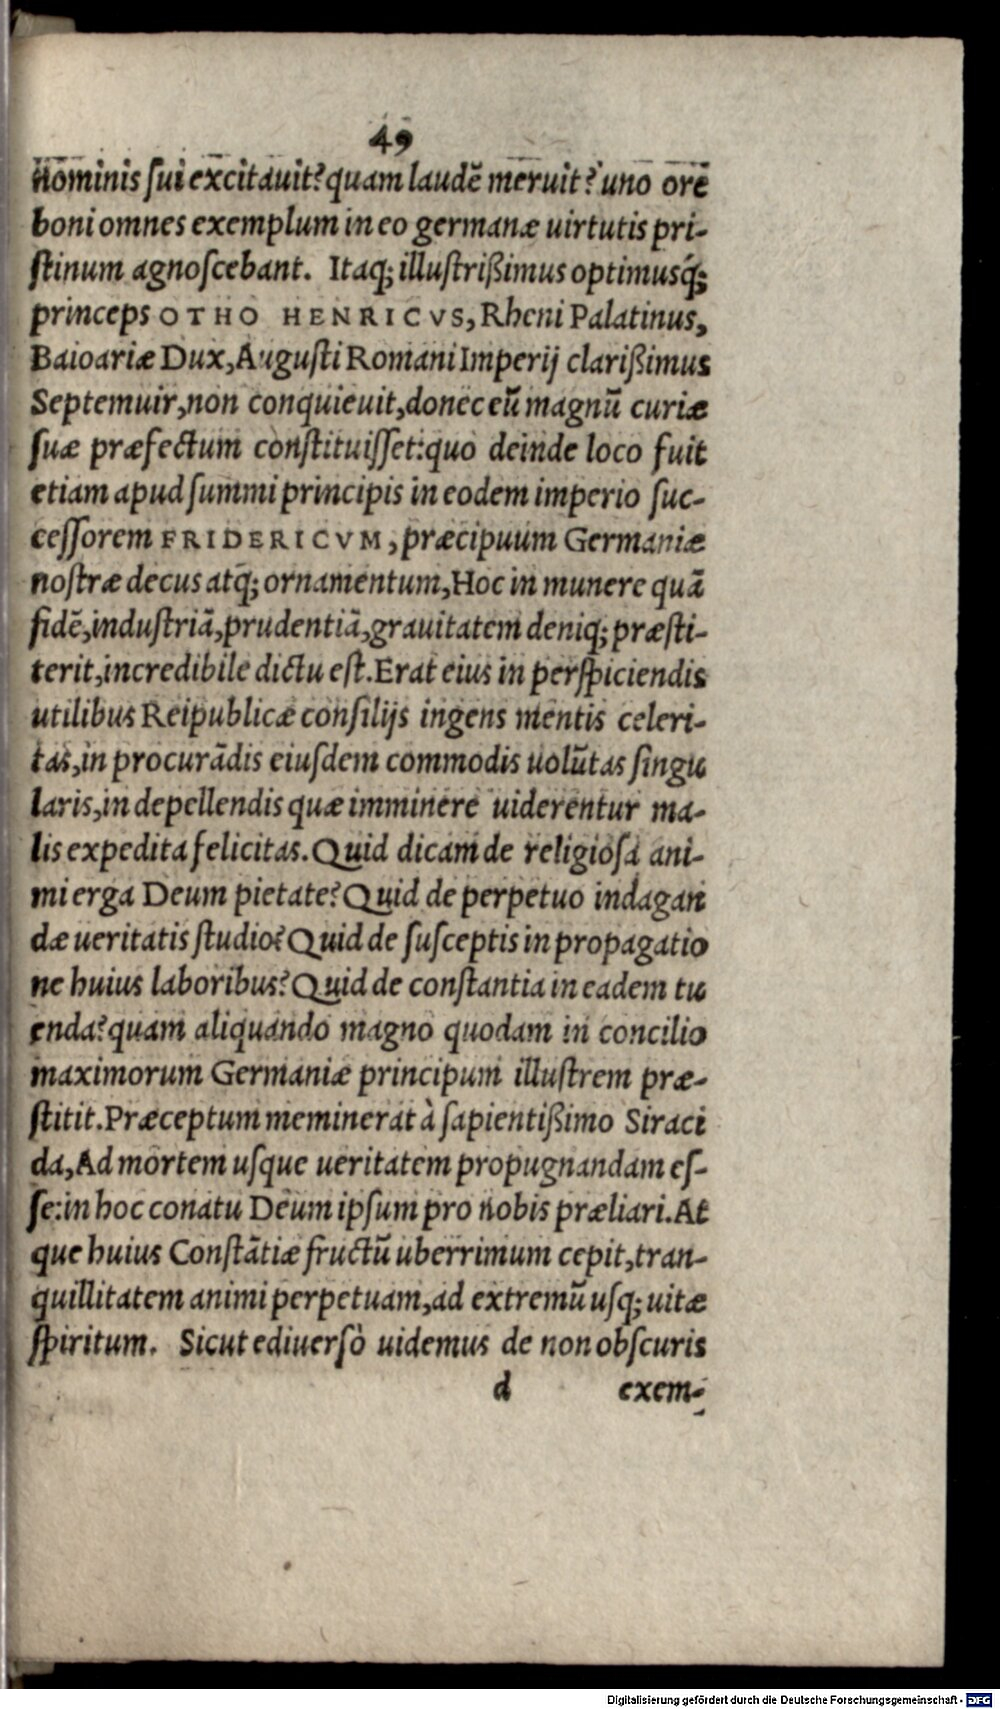 49
nominis ſui excitauit? quam laudē meruit? uno ore
boni omnes exemplum in eo germanæ uirtutis pri-
ſtinum agnoſcebant. Itaq; illuſtrißimus optimusq́;
princeps OTHO HENRICVS, Rheni Palatinus,
Baioariæ Dux, Auguſti Romani Imperij clarißimus
Septemuir, non conquieuit, donec eū magnū curiæ
ſuæ præfectum conſtituiſſet: quo deinde loco fuit
etiam apud ſummi principis in eodem imperio ſuc-
ceſſorem FRIDERICVM, præcipuum Germaniæ
noſtræ decus atq; ornamentum, Hoc in munere quā
fidē, induſtriā, prudentiā, grauitatem deniq; præſti-
terit, incredibile dictu eſt. Erat eius in perſpiciendis
utilibus Reipublicæ conſilijs ingens mentis celeri-
tas, in procurādis eiuſdem commodis uolūtas ſingu
laris, in depellendis quæ imminere uiderentur ma-
lis expedita felicitas. Quid dicam de religioſa ani-
mi erga Deum pietate? Quid de perpetuo indagan
dæ ueritatis ſtudio? Quid de ſuſceptis in propagatio
ne huius laboribus? Quid de conſtantia in eadem tu
enda? quam aliquando magno quodam in concilio
maximorum Germaniæ principum illuſtrem præ-
ſtitit. Præceptum meminerat à ſapientißimo Siraci
da, Ad mortem uſque ueritatem propugnandam eſ-
ſe: in hoc conatu Deum ipſum pro nobis præliari. At
que huius Conſtātiæ fructū uberrimum cepit, tran-
quillitatem animi perpetuam, ad extremū uſq; uitæ
ſpiritum. Sicut ediuerſò uidemus de non obſcuris
d exem-
Digitalisierung gefördert durch die Deutsche Forschungsgemeinschaft - DFG